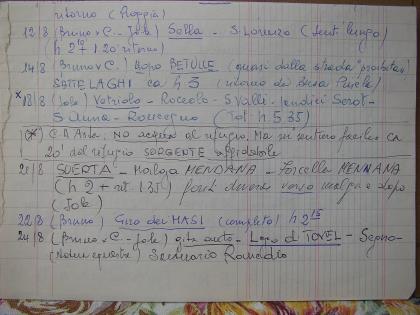 ritorno (Pioggia)
12/8 (Bruno v C. - Jole) Sella - S. Lorenzo (sent. lungo)
h 2 + 1 20 ritorno)
14/8 (Bruno v C.) Lago BETULLE (quasi dalla strada "proibita")
SETTELAGHI ca h 3 (ritorno da
* 18/8 (Jole) Vetriolo - Roccolo - 5 Valli - pendici
S. Anna - Roncegno (Tot h 5.35)
(*) C.A Asta: NO acqua al rifugio. Ma su sentiero facile ca
20' dal rifugio SORGENTE affidabile
21/8 SUERTA' - Malga MENDANA - Forcella MENDANA
(h 2 + rit 1.35) verso malga e dopo
(Jole)
22/8 (Bruno) Giro dei MASI (completo) h 2 15
24/8 (Bruno v C. - Jole) gita auto - Lago di TOVEL -
Santuario Romedio